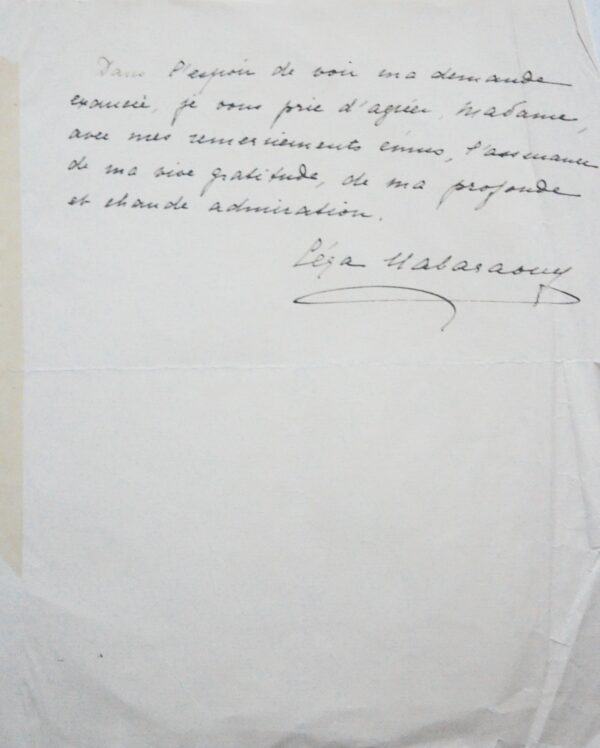 Dans l'espoir de voir ma demande
exaucée, je vous prie d'agréer, Madame,
avec mes remerciements émus, l'assurance
de ma vive gratitude, de ma profonde
et chaude admiration.
Céza Nabaraouy